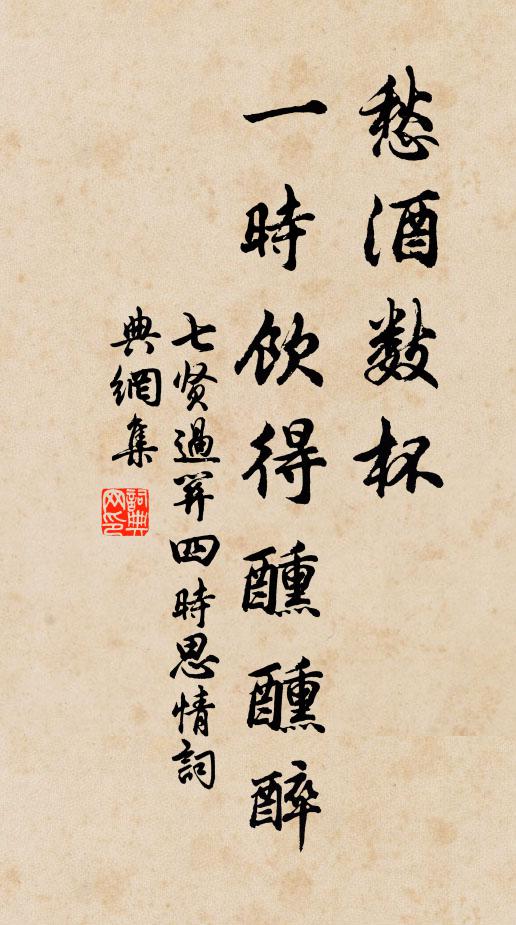 愁酒数杯
一時飲得醺醺醉
七贤過关四時思情詞
典網集
詞典網印